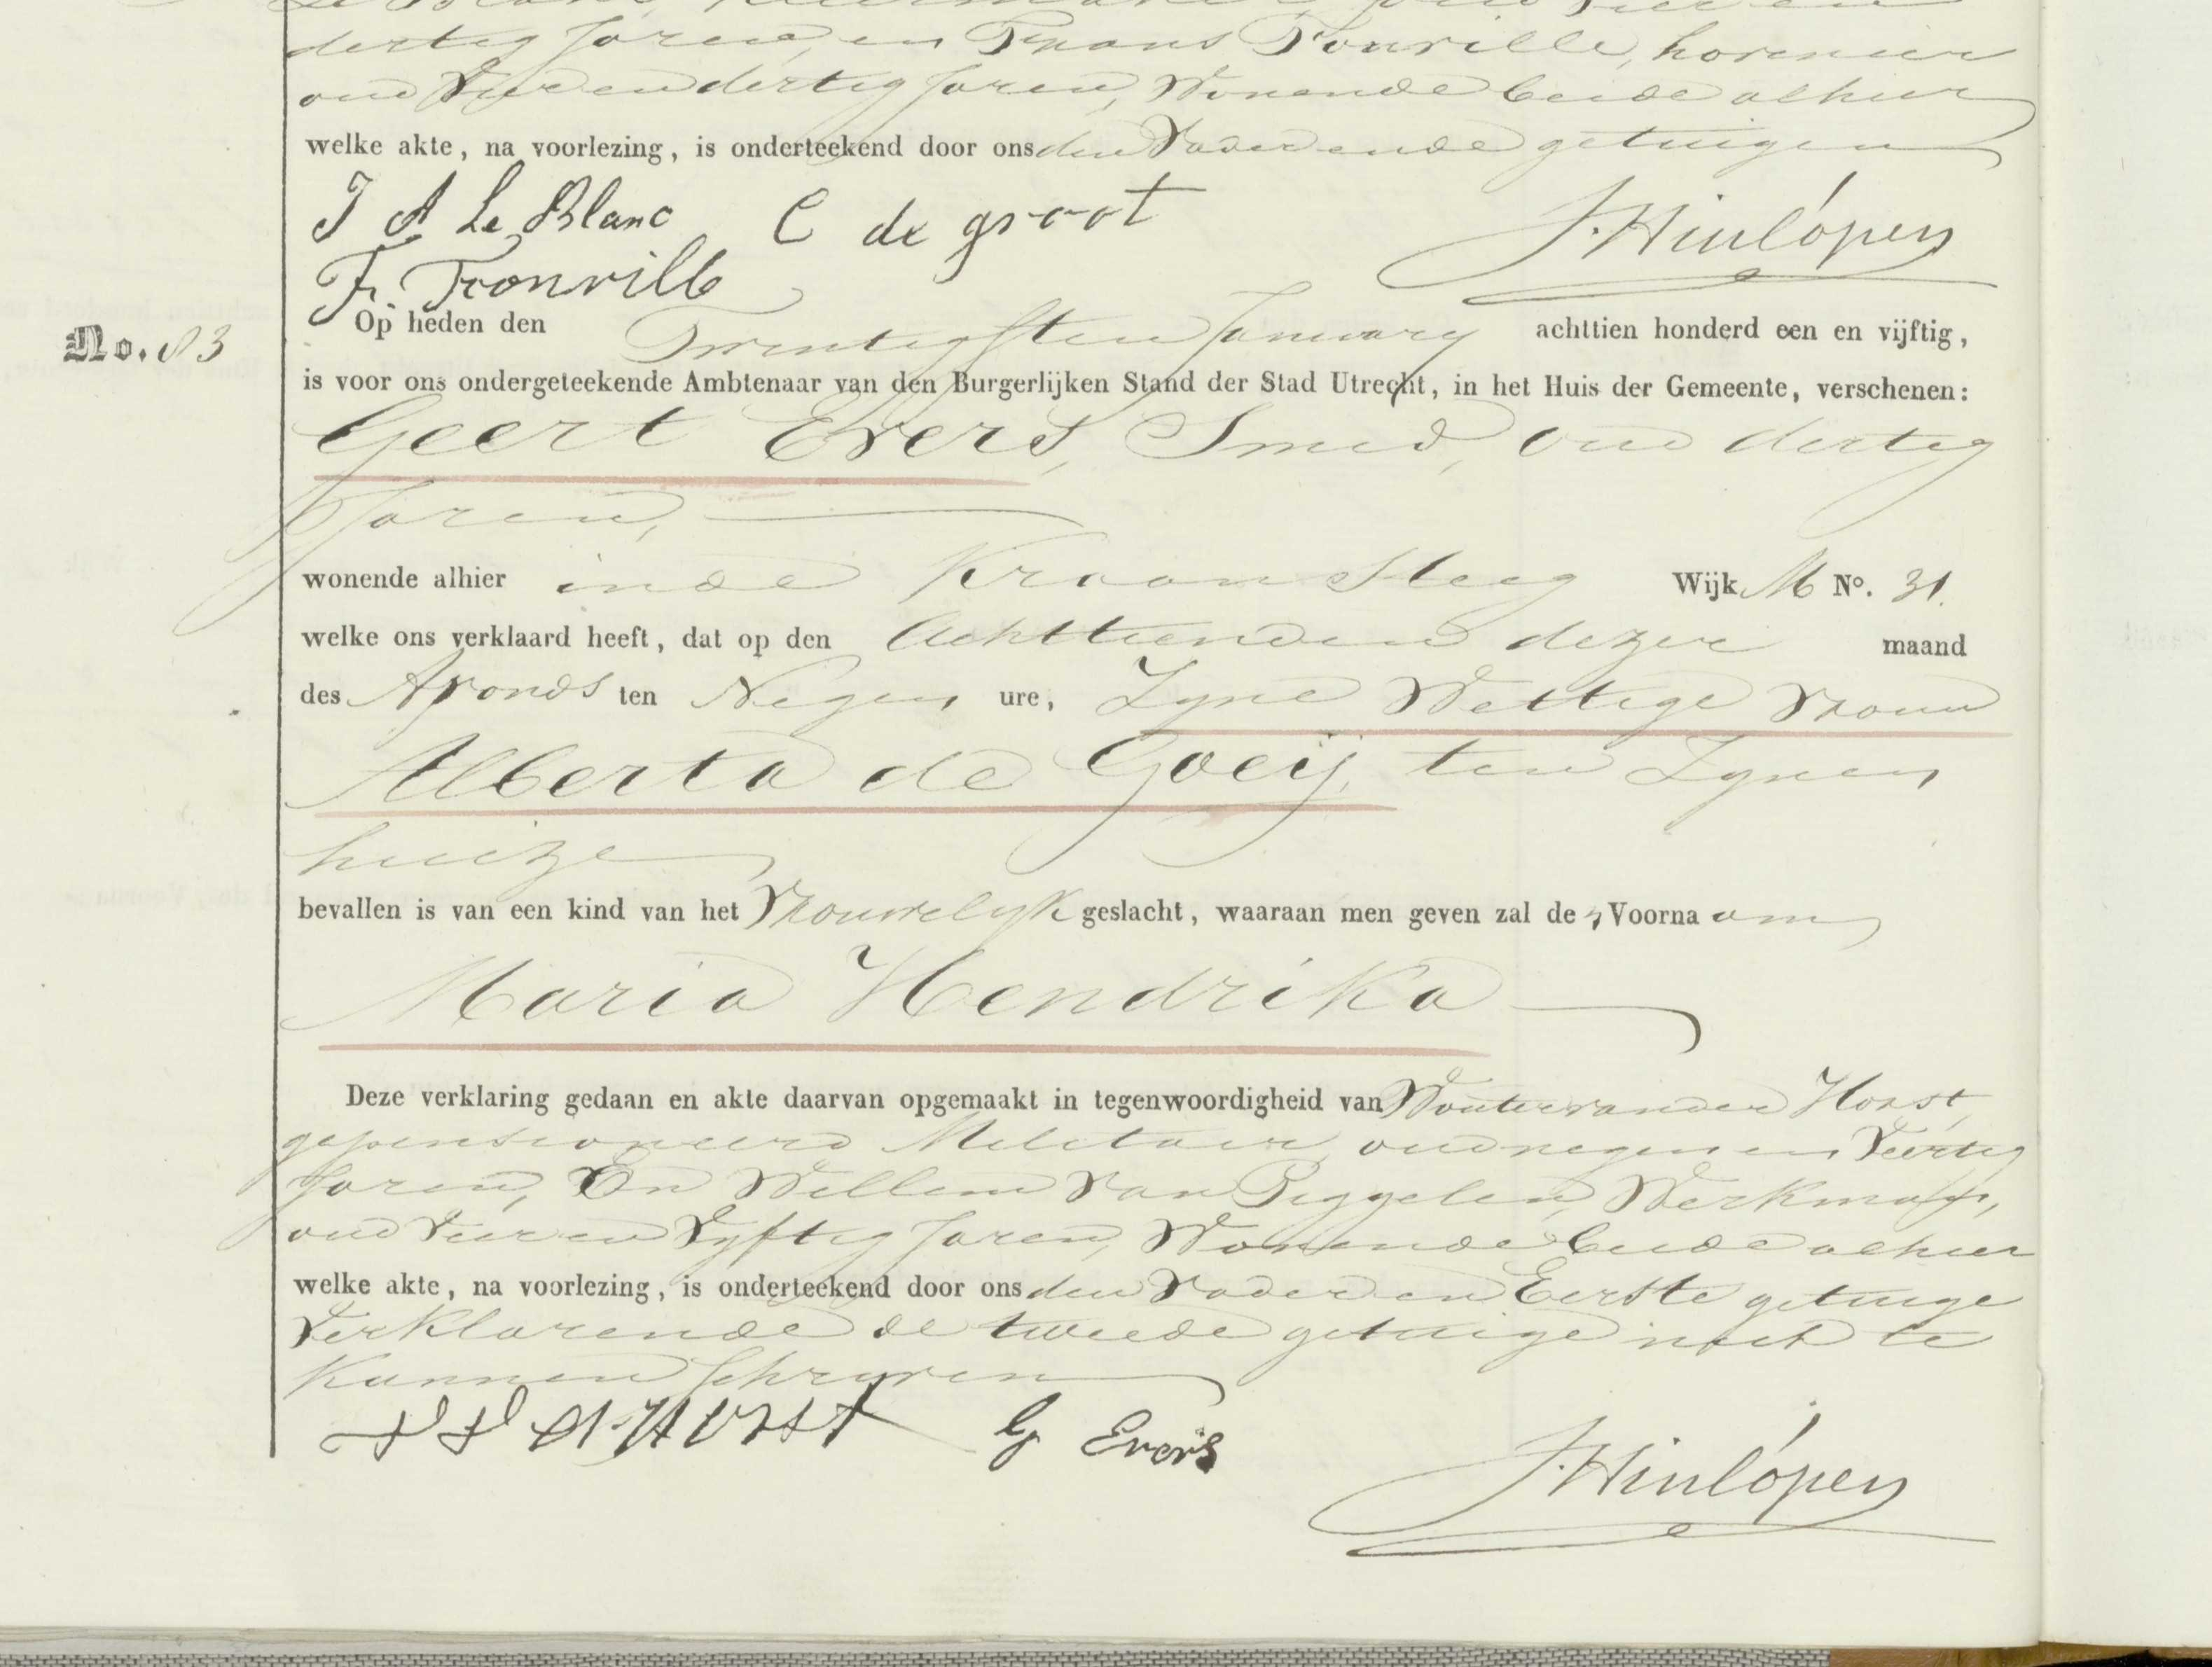 dertig Jaren, en Frans Tronville, hovenier
oud Vier en dertig Jaren, Wonende beide alhier
welke akte, na voorlezing, is onderteekend door ons den Vader en de getuigen
J A Le Blanc C de groot J. Hinlópen
F. Tronville
No. 83
Op heden den Twintigsten January achttien honderd een en vijftig,
is voor ons ondergeteekende Ambtenaar van den Burgerlijken Stand der Stad Utrecht, in het Huis der Gemeente, verschenen:
Geert Evers, Smid, oud dertig
Jaren,
wonende alhier in de Kroon Steeg Wijk M No. 31.
welke ons verklaard heeft, dat op den Achttienden dezer maand
des Avonds ten Negen ure, Zyne Wettige Vrouw
Alberta de Goeij, ten Zynen
huize
bevallen is van een kind van het Vrouwelyk geslacht, waaraan men geven zal de Voorna am
Maria Hendrika
Deze verklaring gedaan en akte daarvan opgemaakt in tegenwoordigheid van Wouter van der Horst,
gepensioneerd Militair, oud negen en Veertig
Jaren, En Willem van Piggelen, Werkman,
oud Vier en Vyftig Jaren, Wonende beide alhier
welke akte, na voorlezing, is onderteekend door ons den Vader en Eerste getuige
Verklarende de tweede getuige niet te
Kunnen Schryven
G Evers J. Hinlópen